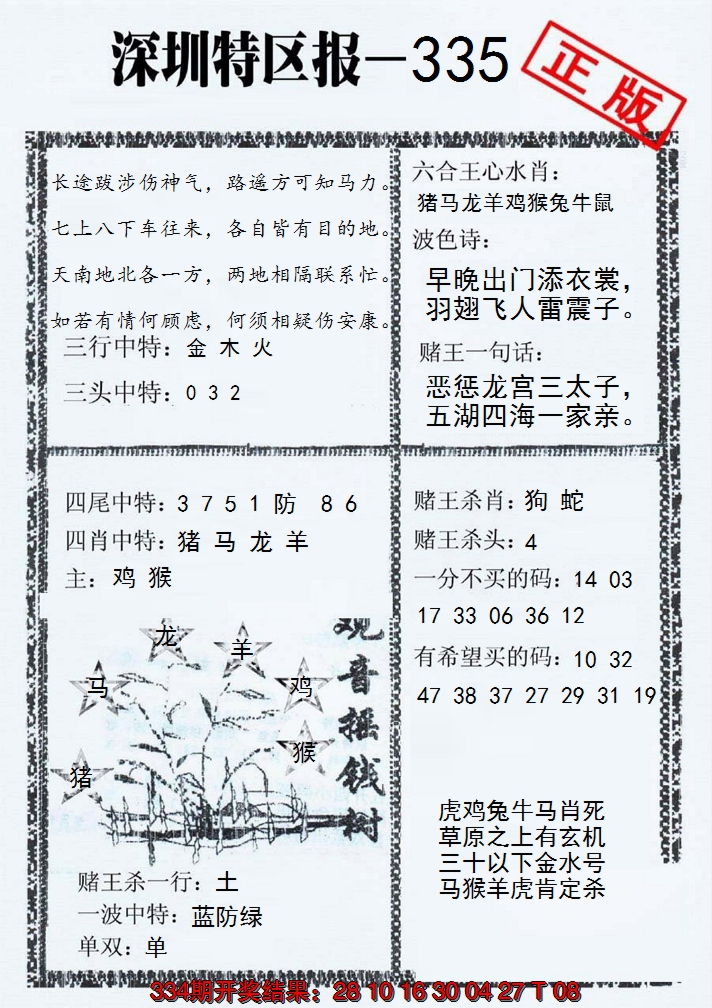 深圳特区报-335
正版
长途跋涉伤神气，路遥方可知马力。
七上八下车往来，各自皆有目的地。
天南地北各一方，两地相隔联系忙。
如若有情何顾虑，何须相疑伤安康。
三行中特：金 木 火
三头中特：0 3 2
六合王心水肖：
猪马龙羊鸡猴兔牛鼠
波色诗：
早晚出门添衣裳，
羽翅飞人雷震子。
赌王一句话：
恶惩龙宫三太子，
五湖四海一家亲。
四尾中特：3 7 5 1 防 8 6
四肖中特：猪 马 龙 羊
主：鸡 猴
龙
羊
马
鸡
猴
猪
观音摇钱树
赌王杀一行：土
一波中特：蓝防绿
单双：单
赌王杀肖：狗 蛇
赌王杀头：4
一分不买的码：14 03
17 33 06 36 12
有希望买的码：10 32
47 38 37 27 29 31 19
虎鸡兔牛马肖死
草原之上有玄机
三十以下金水号
马猴羊虎肯定杀
334期开奖结果：28 10 16 30 04 27 T 08